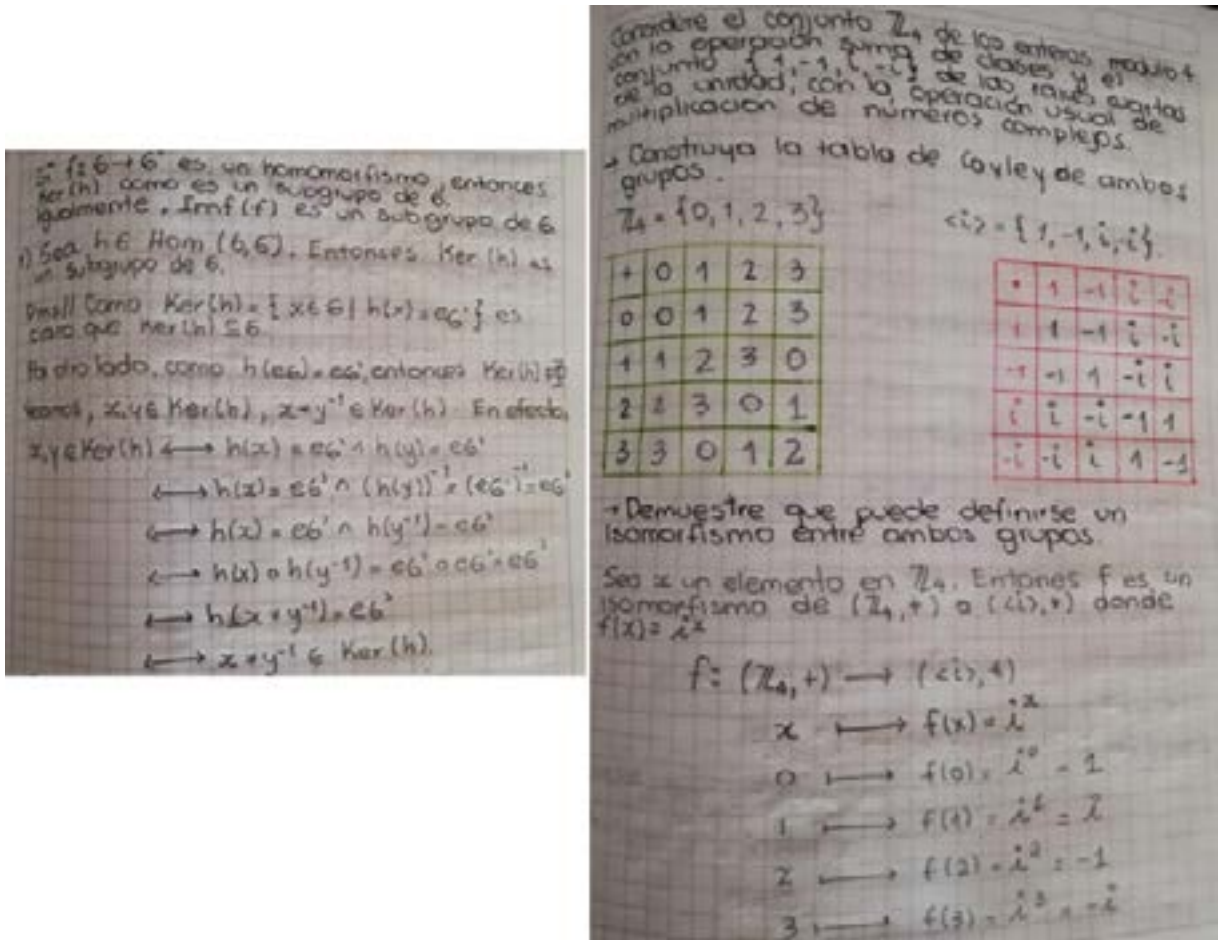 f: G → G' es un homomorfismo, entonces
Ker(h) como es un subgrupo de G.
igualmente, Imf(f) es un subgrupo de G
1) Sea h ∈ Hom (G,G). Entonces Ker(h) es
un subgrupo de G.
Como Ker(h) = { x ∈ G | h(x) = eG' } es
claro que Ker(h) ⊆ G.
Por otro lado, como h(eG) = eG', entonces Ker(h) ≠ ∅
x,y ∈ Ker(h), x*y⁻¹ ∈ Ker(h). En efecto,
x,y ∈ Ker(h) ⟷ h(x) = eG' ∧ h(y) = eG'
⟷ h(x) = eG' ∧ (h(y))⁻¹ = (eG')⁻¹ = eG'
⟷ h(x) = eG' ∧ h(y⁻¹) = eG'
⟷ h(x) ∘ h(y⁻¹) = eG' ∘ eG' = eG'
⟷ h(x*y⁻¹) = eG'
⟷ x*y⁻¹ ∈ Ker(h).
Considere el conjunto ℤ₄ de los enteros modulo 4
con la operación suma de clases y el
conjunto {1,-1,i,-i} de las raíces cuartas
de la unidad, con la operación usual de
multiplicación de números complejos.
→ Construya la tabla de Cayley de ambos
grupos.
ℤ₄ = {0,1,2,3}
<i> = {1,-1,i,-i}.
+ 0 1 2 3
0 0 1 2 3
1 1 2 3 0
2 2 3 0 1
3 3 0 1 2
• 1 -1 i -i
1 1 -1 i -i
-1 -1 1 -i i
i i -i -1 1
-i -i i 1 -1
→ Demuestre que puede definirse un
isomorfismo entre ambos grupos
Sea x un elemento en ℤ₄. Entones f es un
isomorfismo de (ℤ₄,+) a (<i>,*) donde
f(x) = iˣ
f: (ℤ₄,+) ⟶ (<i>,*)
x ⟼ f(x) = iˣ
0 ⟼ f(0) = i⁰ = 1
1 ⟼ f(1) = i¹ = i
2 ⟼ f(2) = i² = -1
3 ⟼ f(3) = i³ = -i